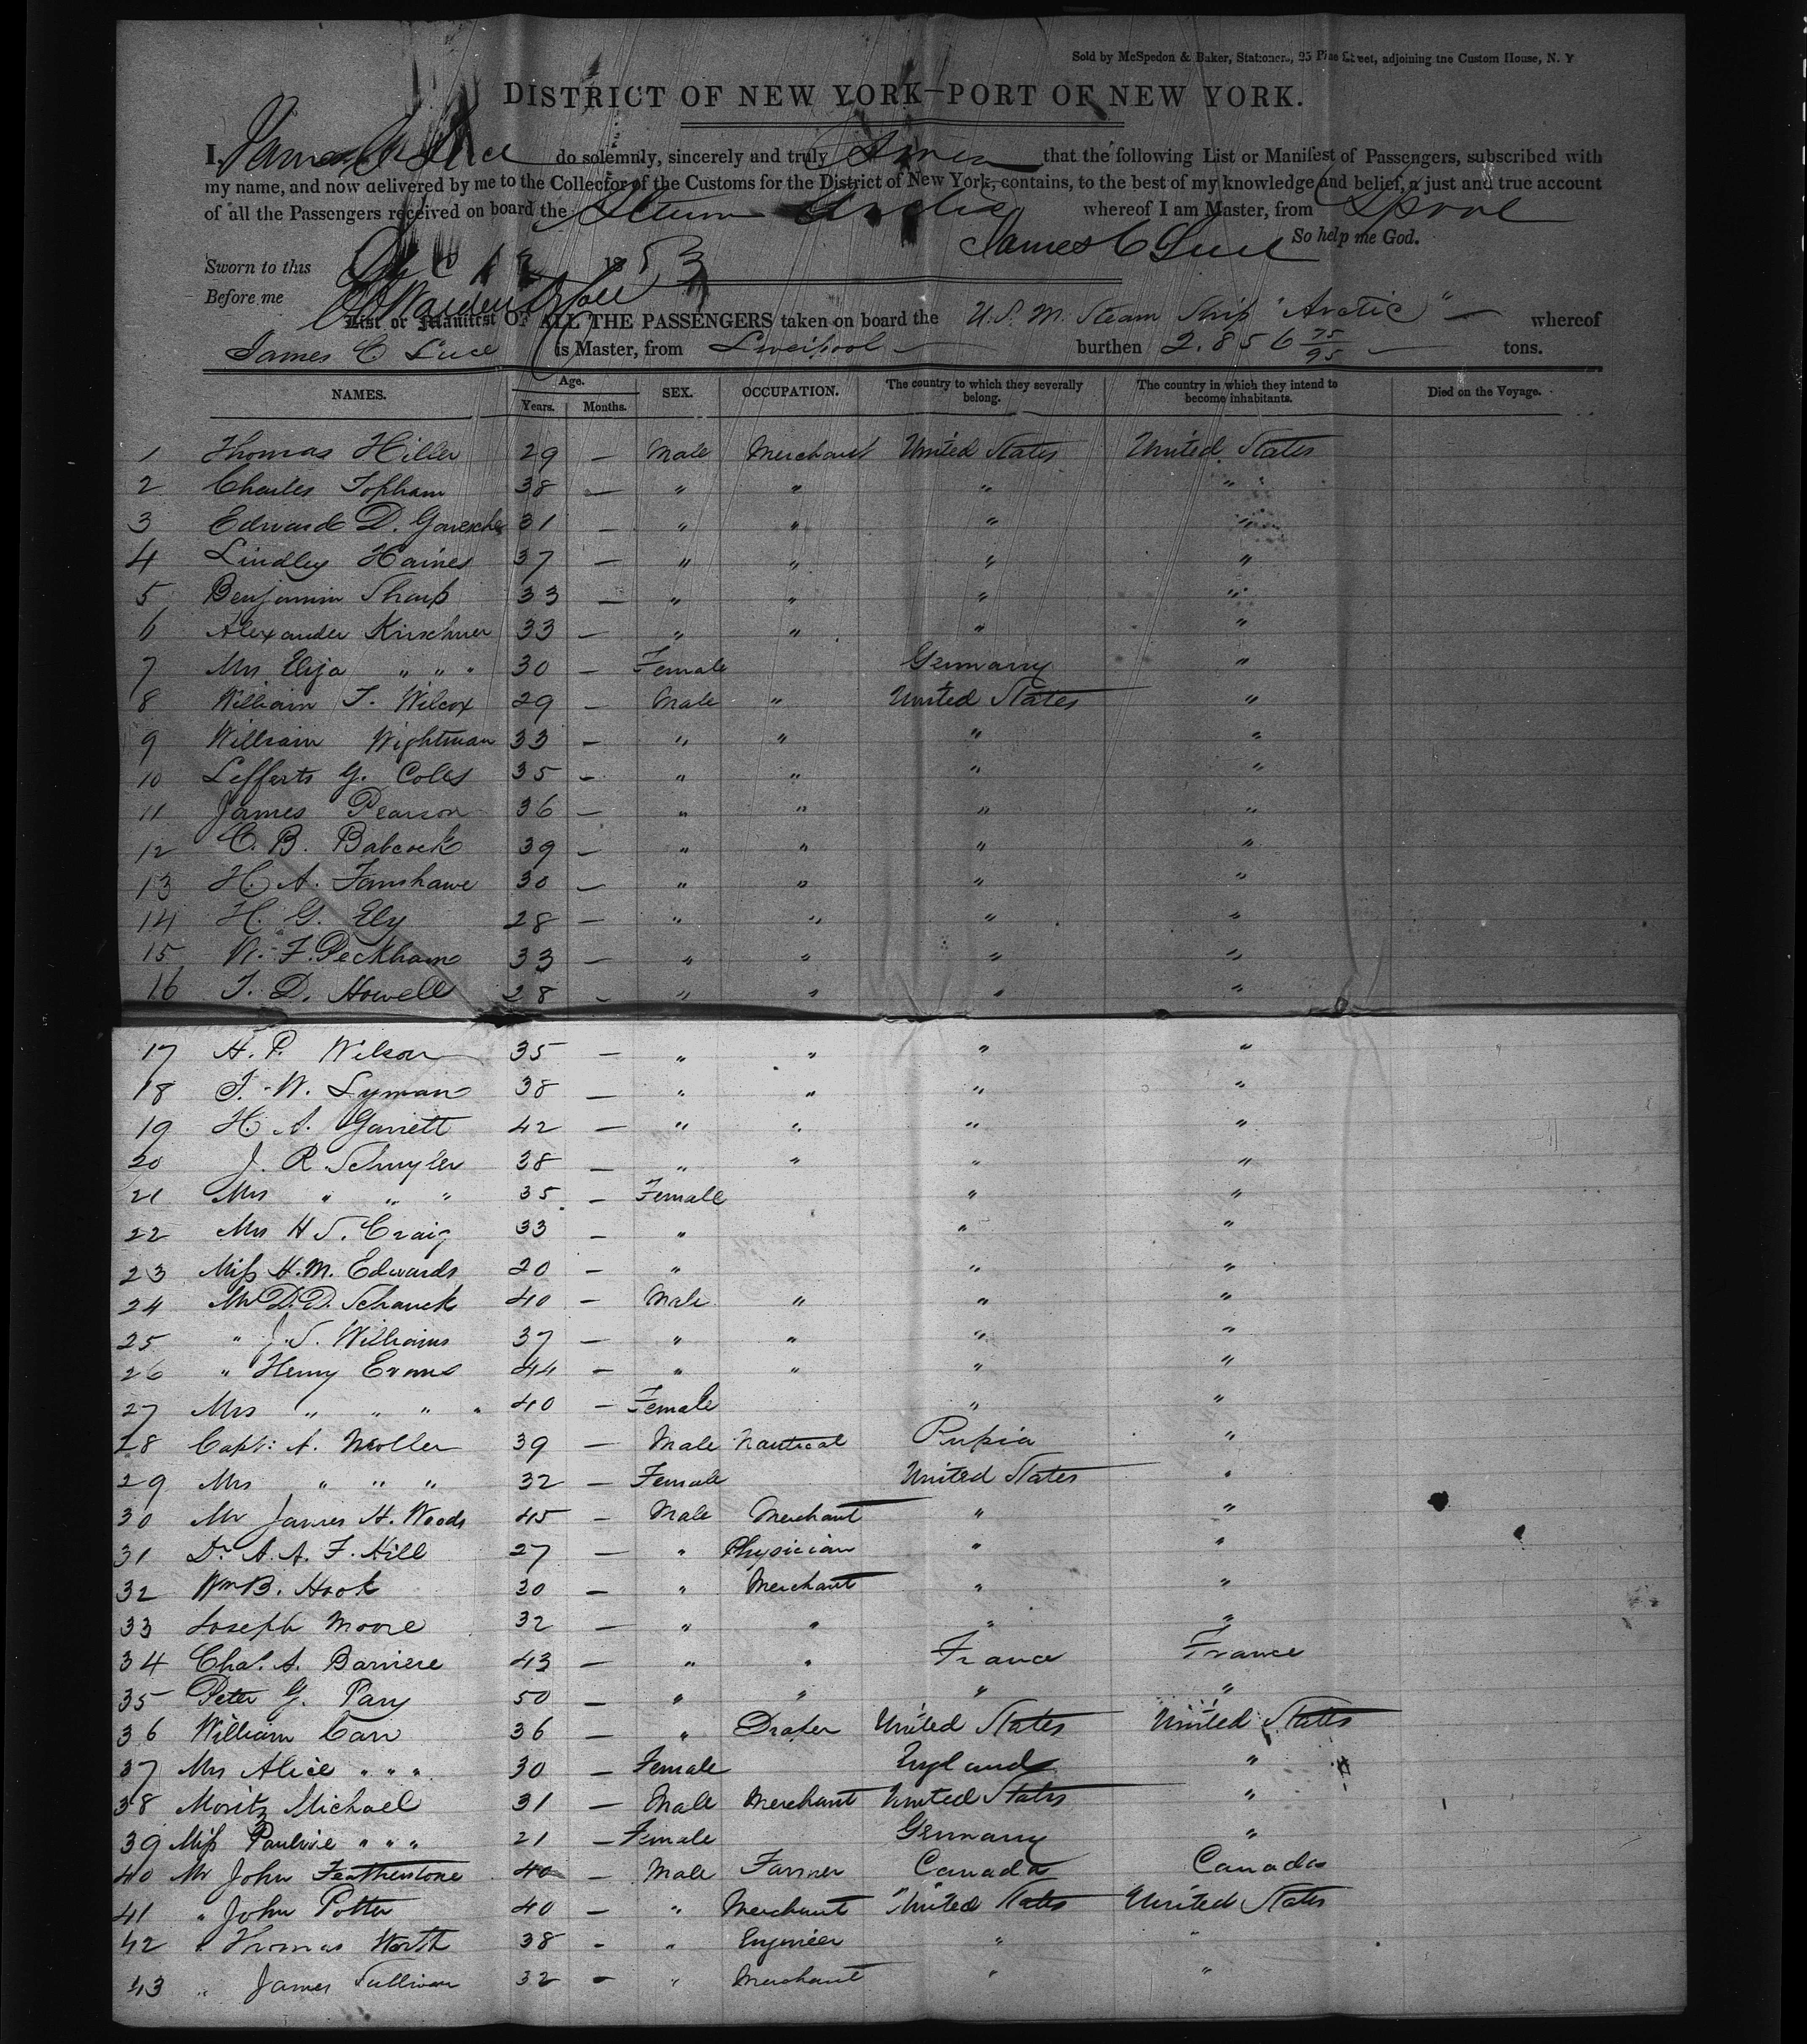 Sold by McSpedon & Baker, Stationers, 25 Pine Street, adjoining the Custom House, N. Y
DISTRICT OF NEW YORK—PORT OF NEW YORK.
I, James C Luce do solemnly, sincerely and truly swear that the following List or Manifest of Passengers, subscribed with
my name, and now delivered by me to the Collector of the Customs for the District of New York, contains, to the best of my knowledge and belief, a just and true account
of all the Passengers received on board the Steamer Arctic whereof I am Master, from Lpool
James C Luce So help me God.
Sworn to this Dec 1853
Before me
List or Manifest OF ALL THE PASSENGERS taken on board the U.S.M. Steam Ship "Arctic" whereof
James C Luce is Master, from Liverpool burthen 2.856 75/95 tons.
NAMES. Age. Years. Months. SEX. OCCUPATION. The country to which they severally belong. The country in which they intend to become inhabitants. Died on the Voyage.
1 Thomas Hiller 29 — Male Merchant United States United States
2 Charles Topham 38 — " " " "
3 Edward D. 31 — " " " "
4 Lindley Haines 37 — " " " "
5 Benjamin Sharp 33 — " " " "
6 Alexander Kirschner 33 — " " " "
7 Mrs Eliza " " " 30 — Female Germany "
8 William T. Wilcox 29 — Male " United States "
9 William Wightman 33 — " " " "
10 Lefferts G. Coles 35 — " " " "
11 James Pearson 36 — " " " "
12 C. B. Babcock 39 — " " " "
13 H. A. Fanshawe 30 — " " " "
14 H. G. Ely 28 — " " " "
15 W. F. Peckham 33 — " " " "
16 T. D. Howell 28 — " " " "
17 H. P. Wilson 35 — " " " "
18 T. W. Lyman 38 — " " " "
19 H. A. Garrett 42 — " " " "
20 J. R. Schuyler 38 — " " " "
21 Mrs " " " 35 — Female " "
22 Mrs H S. Craig 33 — " " "
23 Miss H. M. Edwards 20 — " " "
24 Mr D. D. Schanck 40 — Male " " "
25 " J. S. Williams 37 — " " " "
26 " Henry Evans 44 — " " " "
27 Mrs " " " " 40 — Female " "
28 Capt: A. Moller 39 — Male Nautical Russia "
29 Mrs " " " 32 — Female United States "
30 Mr James H. Woods 45 — Male Merchant " "
31 Dr A. A. F. Hill 27 — " Physician " "
32 Wm B. Hook 30 — " Merchant " "
33 Joseph Moore 32 — " " " "
34 Chas. A. Barriere 43 — " " France France
35 Peter G. 50 — " " " "
36 William Carr 36 — " Draper United States United States
37 Mrs Alice " " " 30 — Female England "
38 Moritz Michael 31 — Male Merchant United States "
39 Miss Pauline " " " 21 — Female Germany "
40 Mr John Featherstone 40 — Male Farmer Canada Canada
41 " John Potter 40 — " Merchant United States United States
42 " Thomas Worth 38 - " Engineer " "
43 " James Sullivan 32 — " Merchant " "